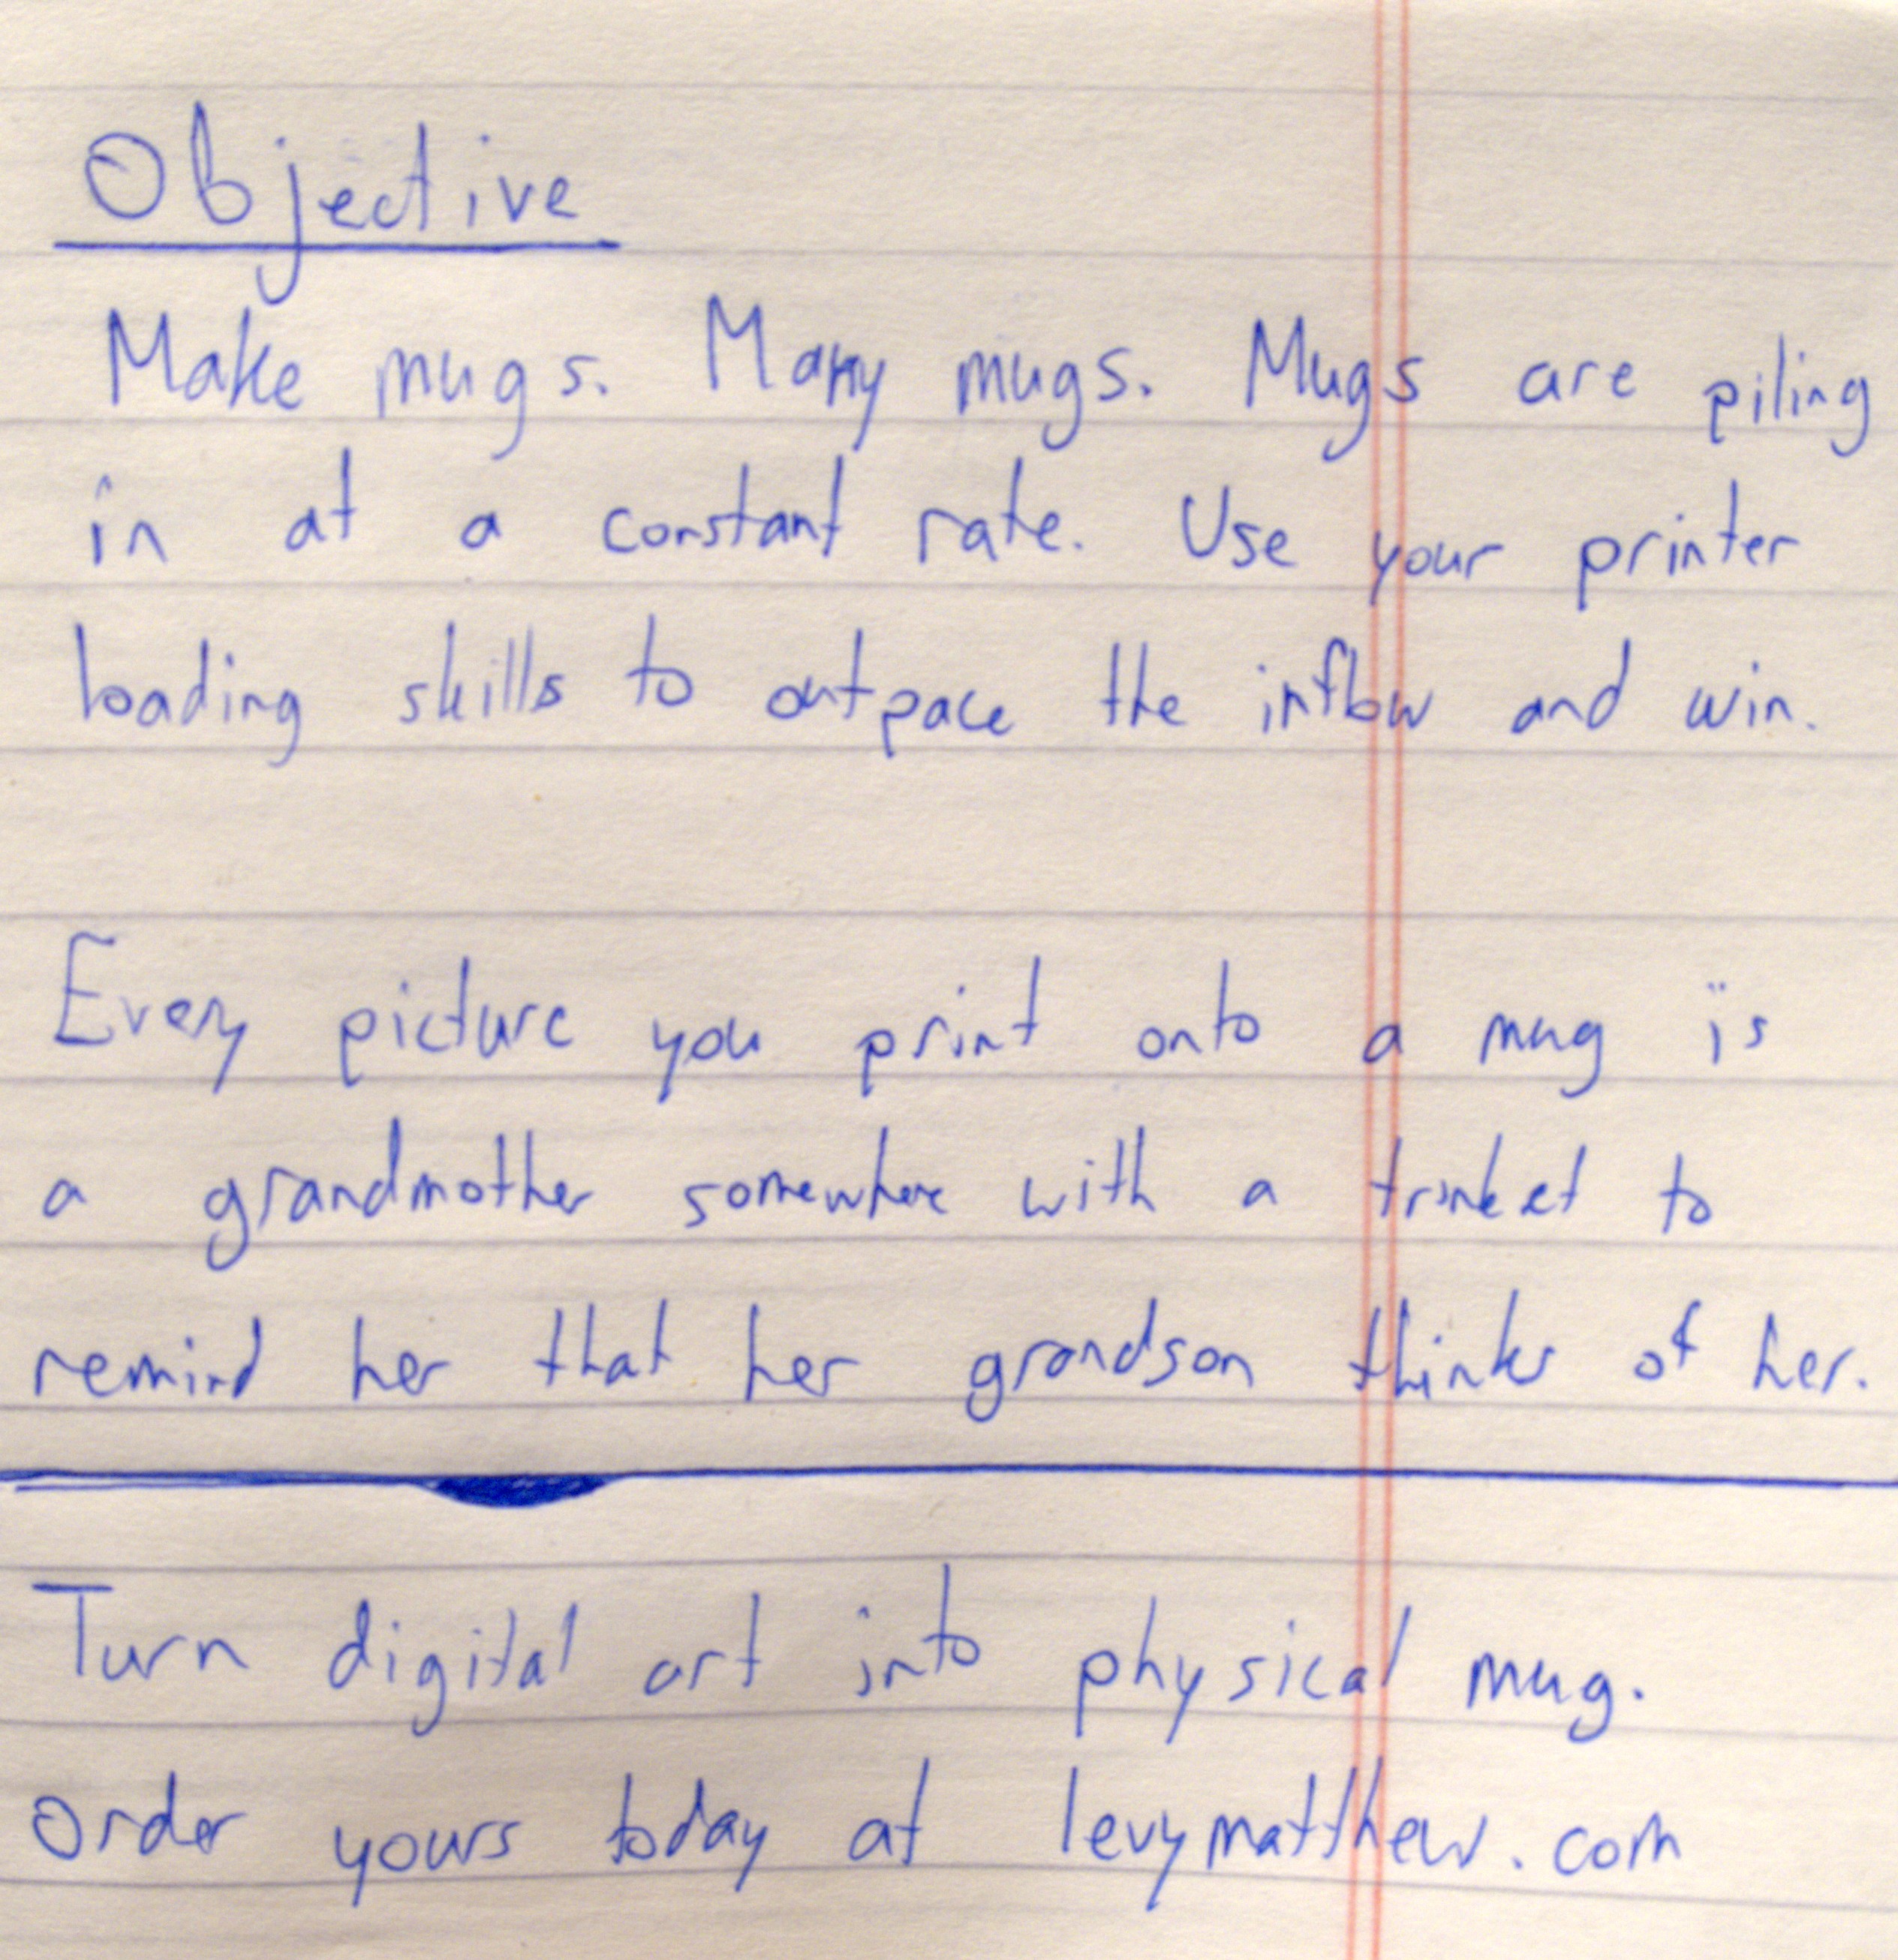 Objective
Make mugs. Many mugs. Mugs are piling
in at a constant rate. Use your printer
loading skills to outpace the inflow and win.
Every picture you print onto a mug is
a grandmother somewhere with a trinket to
remind her that her grandson thinks of her.
Turn digital art into physical mug.
Order yours today at levymatthew.com